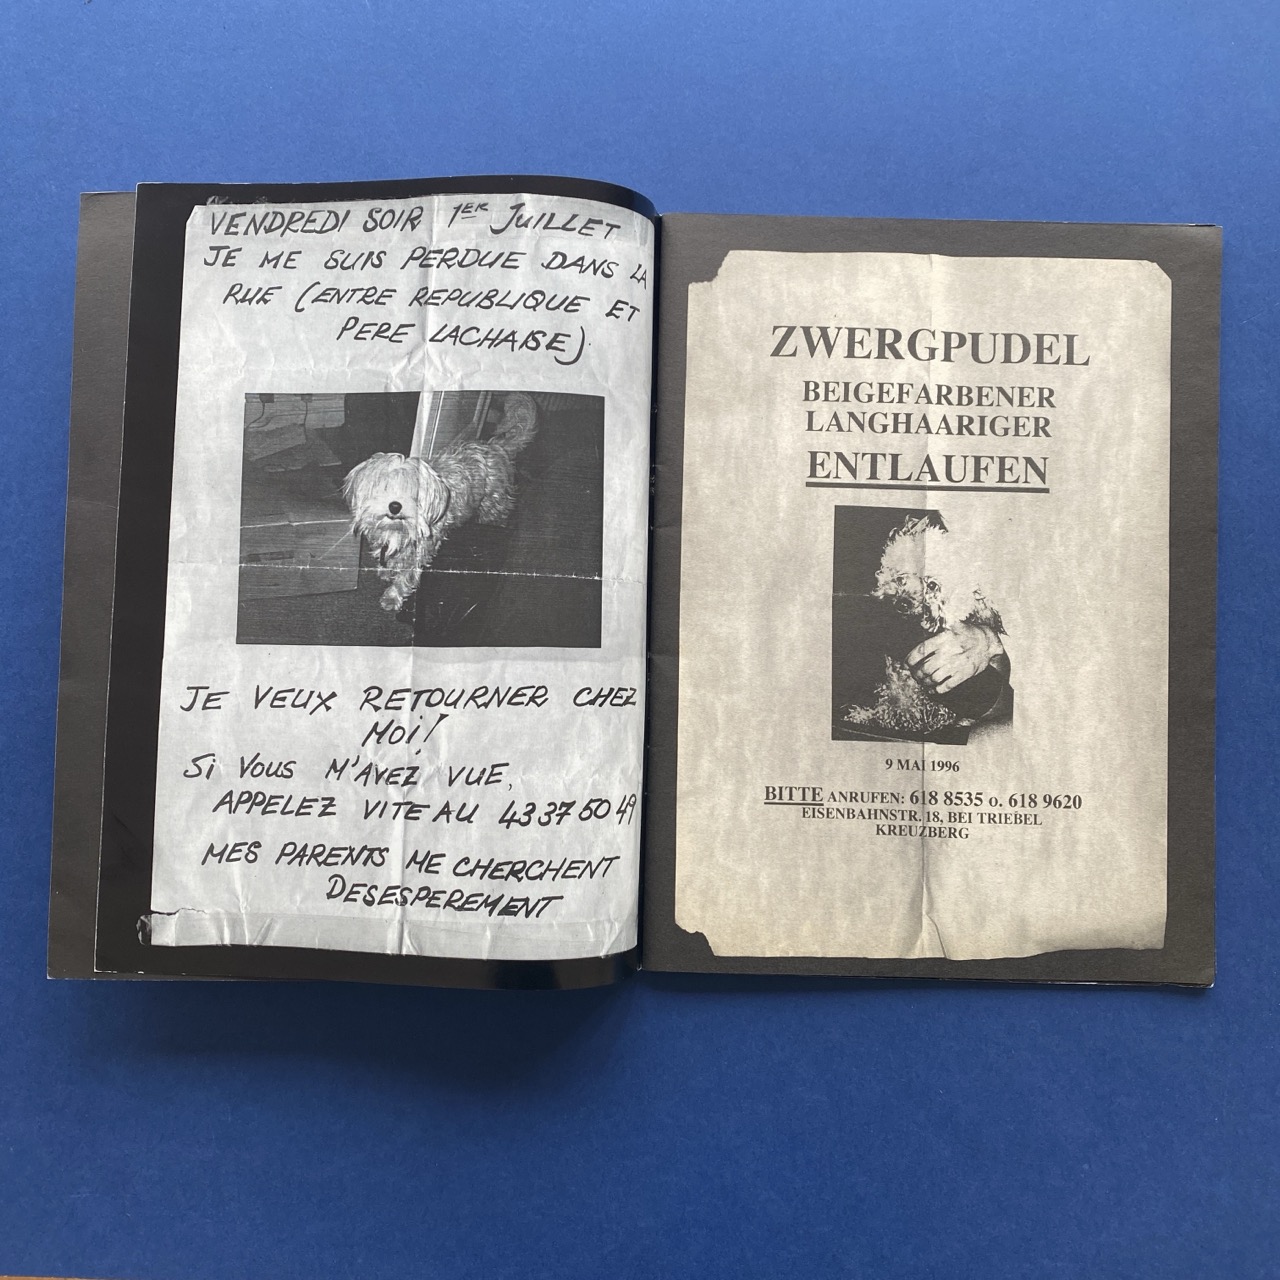 VENDREDI SOIR 1ER JUILLET
JE ME SUIS PERDUE DANS LA
RUE (ENTRE REPUBLIQUE ET
PERE LACHAISE)
JE VEUX RETOURNER CHEZ
MOI!
SI VOUS M'AVEZ VUE,
APPELEZ VITE AU 43 37 50 49
MES PARENTS ME CHERCHENT
DESESPEREMENT
ZWERGPUDEL
BEIGEFARBENER
LANGHAARIGER
ENTLAUFEN
9 MAI 1996
BITTE ANRUFEN: 618 8535 o. 618 9620
EISENBAHNSTR. 18, BEI TRIEBEL
KREUZBERG